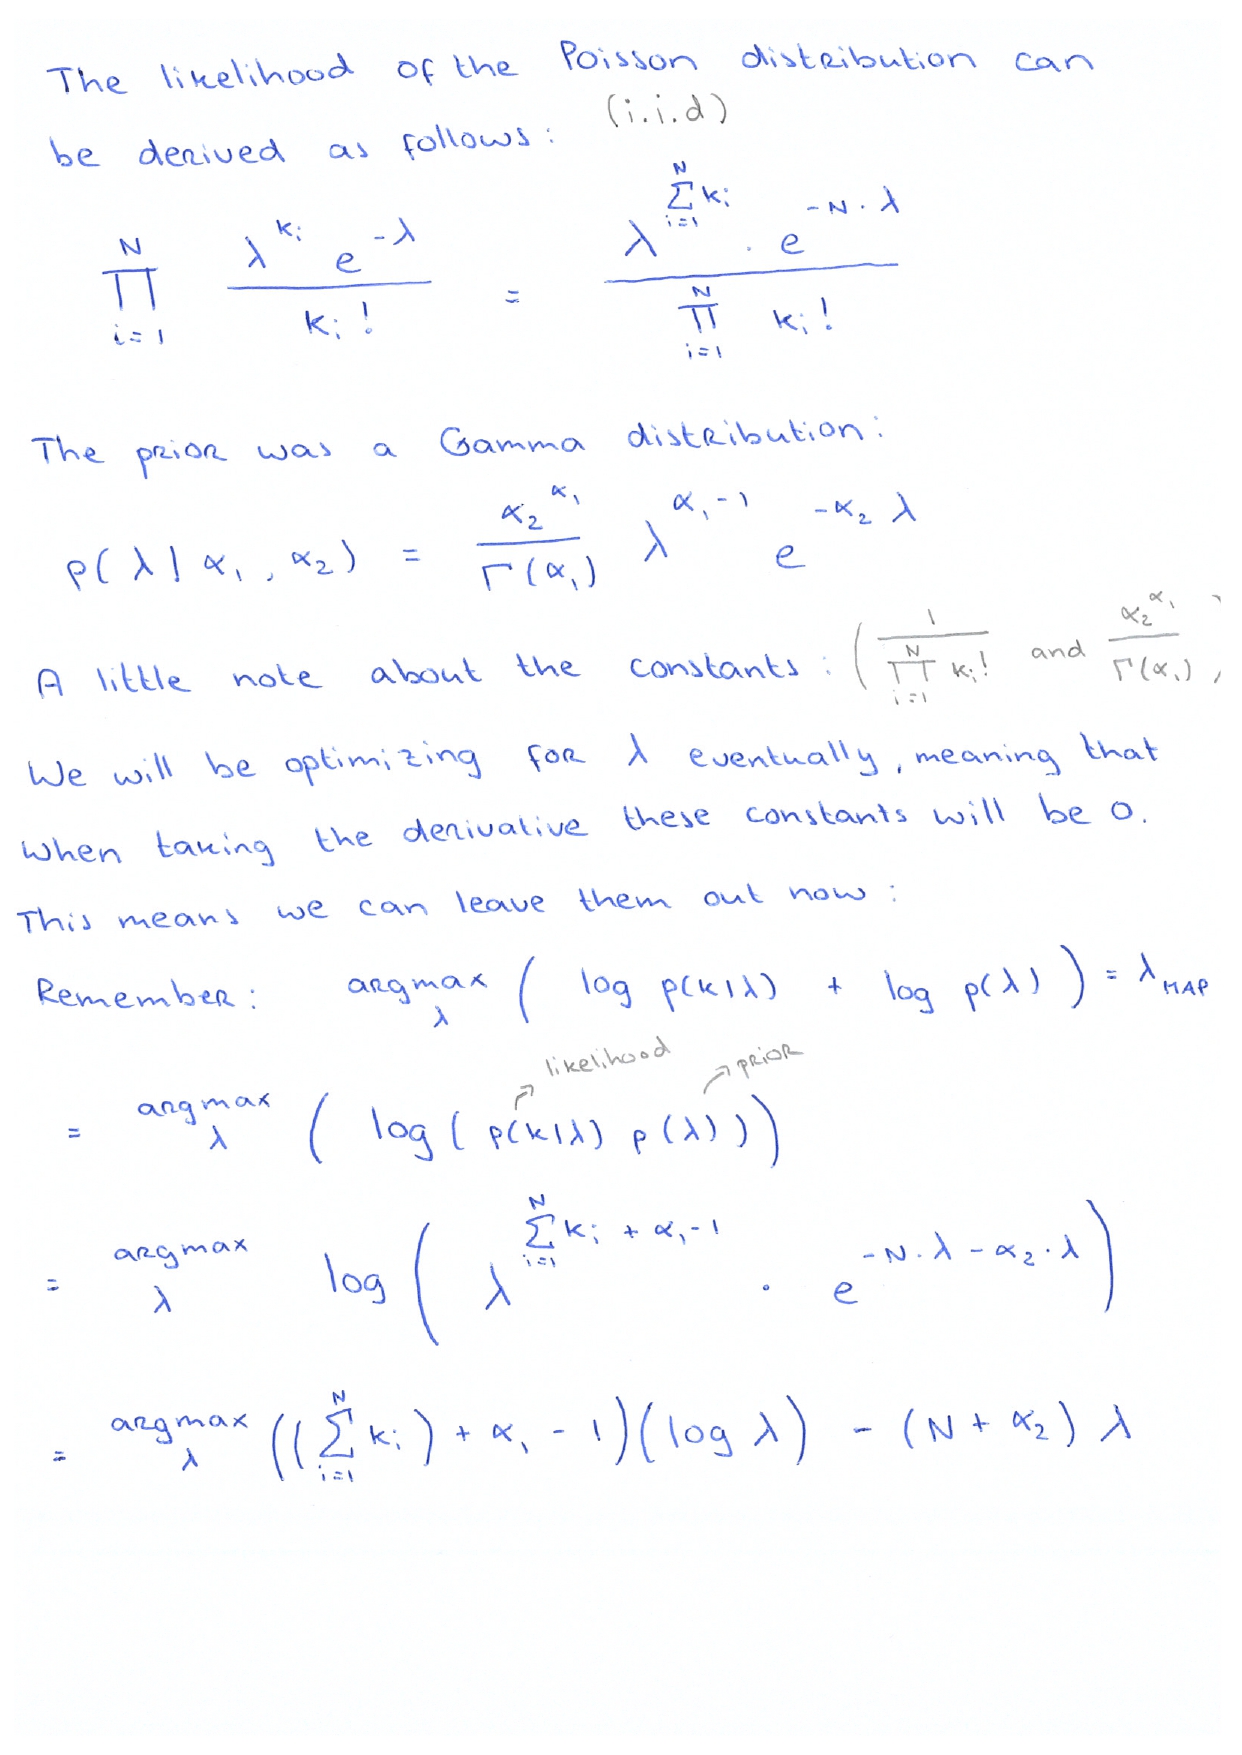 The likelihood of the Poisson distribution can
be derived as follows: (i.i.d)
∏_{i=1}^{N} (λ^{k_i} e^{-λ}) / (k_i!) = (λ^{∑_{i=1}^{N} k_i} · e^{-N·λ}) / (∏_{i=1}^{N} k_i!)
The prior was a Gamma distribution:
p(λ | α₁, α₂) = (α₂^{α₁} / Γ(α₁)) λ^{α₁-1} e^{-α₂ λ}
A little note about the constants: (1 / (∏_{i=1}^{N} k_i!) and α₂^{α₁} / Γ(α₁))
We will be optimizing for λ eventually, meaning that
when taking the derivative these constants will be 0.
This means we can leave them out now:
Remember: argmax_λ ( log p(k|λ) + log p(λ) ) = λ_MAP
likelihood prior
= argmax_λ ( log ( p(k|λ) p(λ) ) )
= argmax_λ log ( λ^{∑_{i=1}^{N} k_i + α₁-1} · e^{-N·λ - α₂·λ} )
= argmax_λ ((∑_{i=1}^{N} k_i) + α₁ - 1)(log λ) - (N + α₂) λ